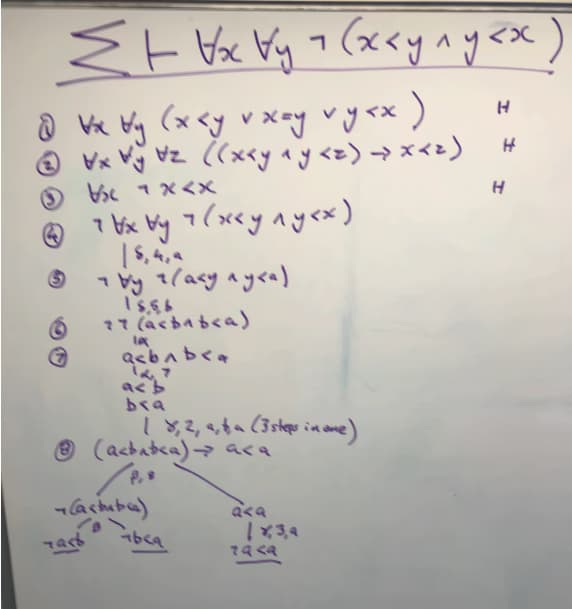 Σ ⊢ ∀x ∀y ¬(x<y ∧ y<x)
① ∀x ∀y (x<y ∨ x=y ∨ y<x) H
② ∀x ∀y ∀z ((x<y ∧ y<z) → x<z) H
③ ∀x ¬ x<x H
④ ¬ ∀x ∀y ¬(x<y ∧ y<x)
| δ, 4, a
⑤ ¬ ∀y ¬(a<y ∧ y<a)
| δ, 5, b
⑥ ¬¬(a<b ∧ b<a)
| α
⑦ a<b ∧ b<a
| α, 7
a<b
b<a
| γ, 2, a, b, a (3 steps in one)
⑧ (a<b ∧ b<a) → a<a
β, 8
¬(a<b ∧ b<a) a<a
β | γ, 3, a
¬a<b ¬b<a ¬a<a